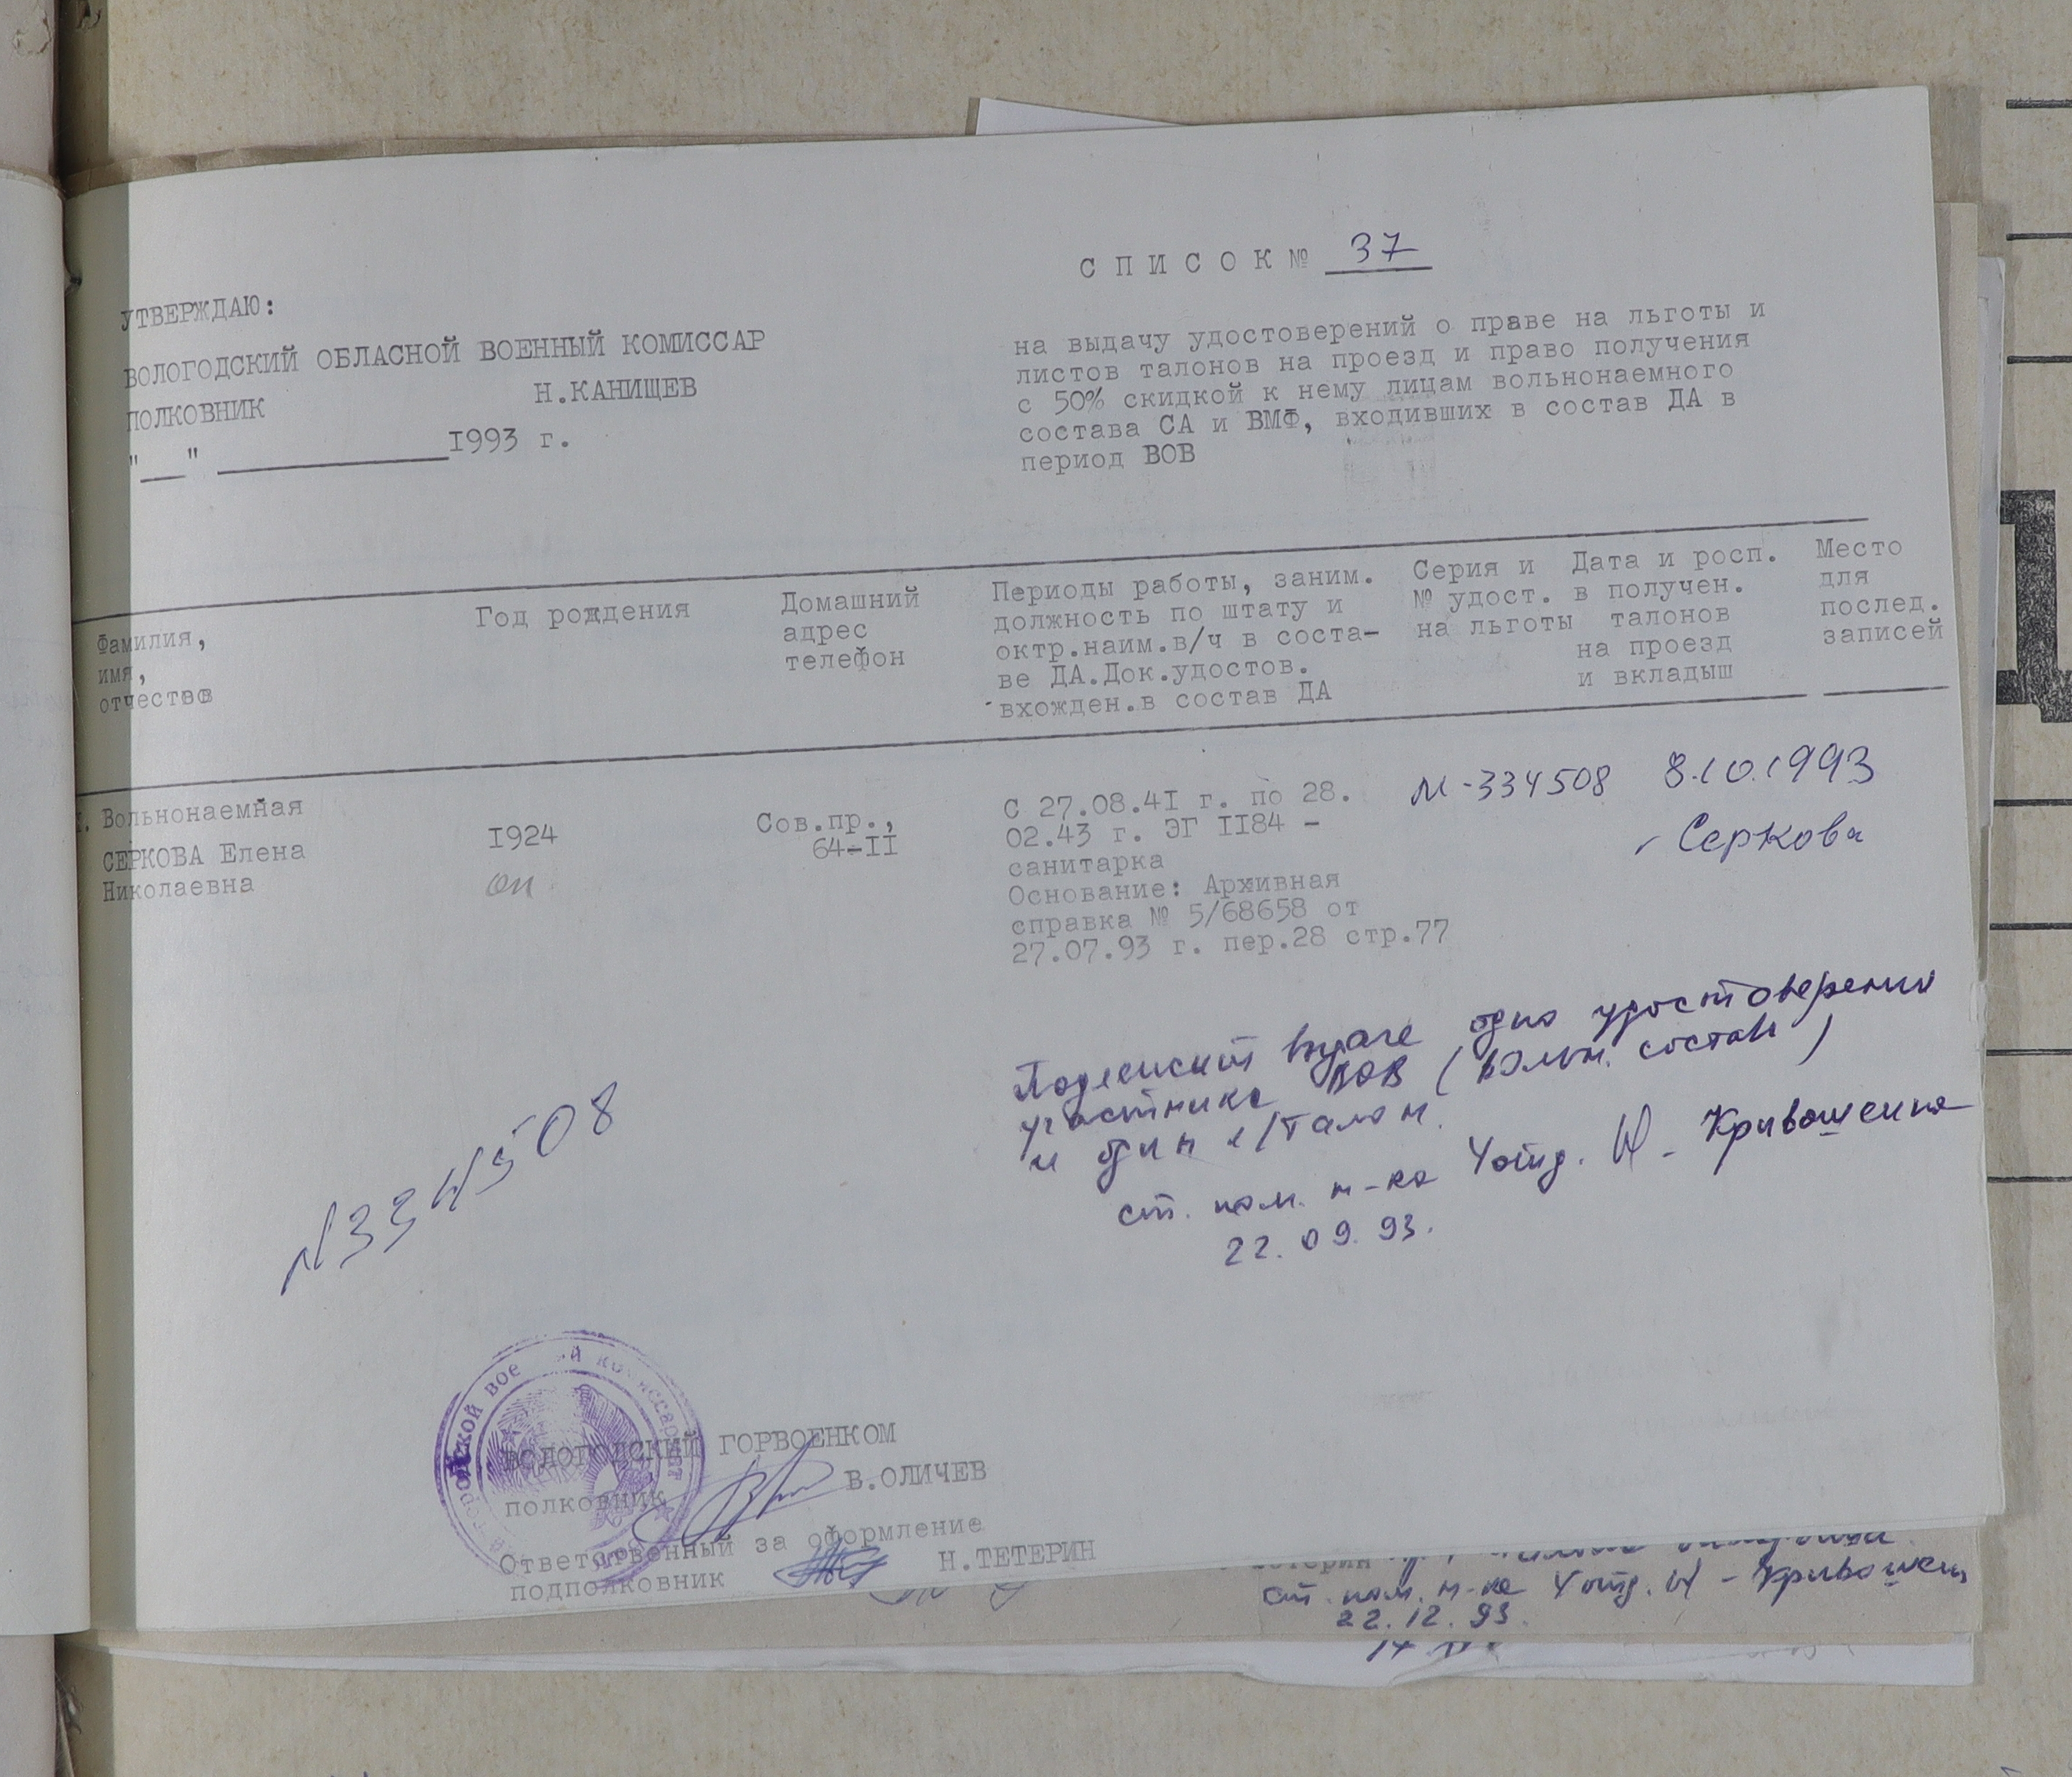 С П И С О К № 37
УТВЕРЖДАЮ:
ВОЛОГОДСКИЙ ОБЛАСНОЙ ВОЕННЫЙ КОМИССАР
ПОЛКОВНИК Н.КАНИЩЕВ
"___" ______________1993 г.
на выдачу удостоверений о праве на льготы и
листов талонов на проезд и право получения
с 50% скидкой к нему лицам вольнонаемного
состава СА и ВМФ, входивших в состав ДА в
период ВОВ
Фамилия,
имя,
отчество
Год рождения
Домашний
адрес
телефон
Периоды работы, заним.
должность по штату и
октр.наим.в/ч в соста-
ве ДА.Док.удостов.
вхожден.в состав ДА
Серия и
№ удост.
на льготы
Дата и росп.
в получен.
талонов
на проезд
и вкладыш
Место
для
послед.
записей
I. Вольнонаемная
СЕРКОВА Елена
Николаевна
I924
оп
Сов.пр.,
64-II
С 27.08.4I г. по 28.
02.43 г. ЭГ II84 -
санитарка
Основание: Архивная
справка № 5/68658 от
27.07.93 г. пер.28 стр.77
М-334508
8.10.1993
Серкова
Подлежит выдаче одно удостоверение
участника ВОВ (вольн. состав)
и один л/талон.
ст. пом. н-ка 4 отд. Кривошеина
22.09.93.
N334508
ВОЛОГОДСКИЙ ГОРВОЕНКОМ
полковник В.ОЛИЧЕВ
Ответственный за оформление
подполковник Н.ТЕТЕРИН
ст. пом. н-ка 4 отд.
22.12.93.